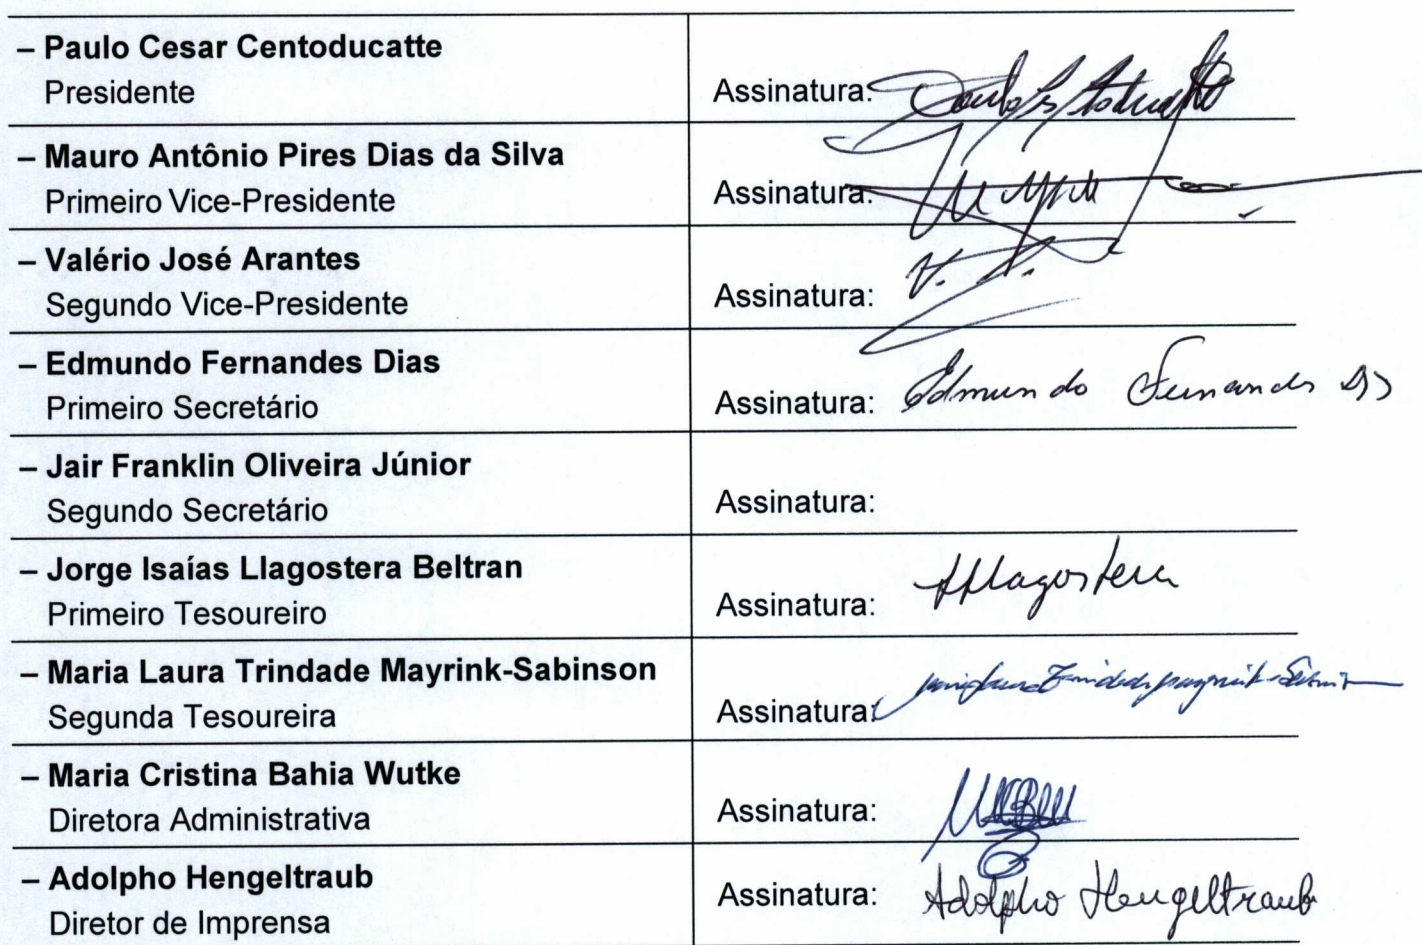 – Paulo Cesar Centoducatte
Presidente
Assinatura:
– Mauro Antônio Pires Dias da Silva
Primeiro Vice-Presidente
Assinatura:
– Valério José Arantes
Segundo Vice-Presidente
Assinatura: V. A.
– Edmundo Fernandes Dias
Primeiro Secretário
Assinatura: Edmundo Fernandes Dias
– Jair Franklin Oliveira Júnior
Segundo Secretário
Assinatura:
– Jorge Isaías Llagostera Beltran
Primeiro Tesoureiro
Assinatura: Llagostera
– Maria Laura Trindade Mayrink-Sabinson
Segunda Tesoureira
Assinatura: Maria Laura Trindade Mayrink-Sabinson
– Maria Cristina Bahia Wutke
Diretora Administrativa
Assinatura:
– Adolpho Hengeltraub
Diretor de Imprensa
Assinatura: Adolpho Hengeltraub